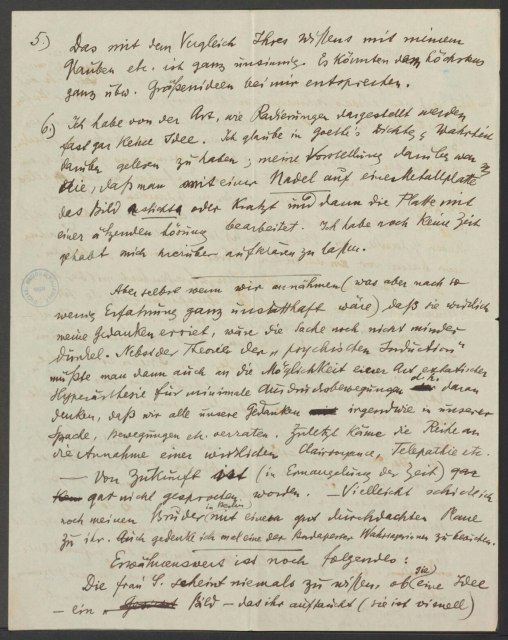 5.) Das mit dem Vergleich Ihres Wissens mit meinem
Glauben etc. ist ganz unsinnig. Es könnten dem höchstens
ganz übw. Größenideen bei mir entsprechen.
6.) Ich habe von der Art, wie Radierungen dargestellt werden
fast gar keine Idee. Ich glaube in Goethe's Dichtg & Wahrheit
darüber gelesen zu haben; meine Vorstellung darüber war
die, daß man mit einer Nadel auf eine Metallplatte
das Bild sticht oder kratzt und dann die Platte mit
einer ätzenden Lösung bearbeitet. Ich habe noch keine Zeit
gehabt mich hierüber aufklären zu laßen.
Aber selbst wenn wir annähmen (was aber nach so
wenig Erfahrung ganz unstatthaft wäre) daß sie wirklich
meine Gedanken erriet, wäre die Sache noch nicht minder
dunkel. Nebst der Theorie der „psychischen Induction"
müßte man dann auch an die Möglichkeit einer Art extatischer
Hyperästhesie für minimale Ausdrucksbewegungen d.h. daran
denken, daß wir alle unsere Gedanken irgendwie in unserer
Sprache, Bewegungen etc. verraten. Zuletzt käme die Reihe an
die Annahme einer wirklichen Clairvoyance, Telepathie etc.
— Von Zukunft ist (in Ermangelung der Zeit) gar
gar nicht gesprochen worden. — Vielleicht schicke ich
noch meinen Bruder (in Berlin) mit einem gut durchdachten Plane
zu ihr. Auch gedenke ich mal eine der Budapester Wahrsagerinnen zu besuchen.
Erwähnenswert ist noch folgendes:
Die Frau S. scheint niemals zu wißen, ob (die) eine Idee
— ein Bild — das ihr auftaucht (sie ist visuell)